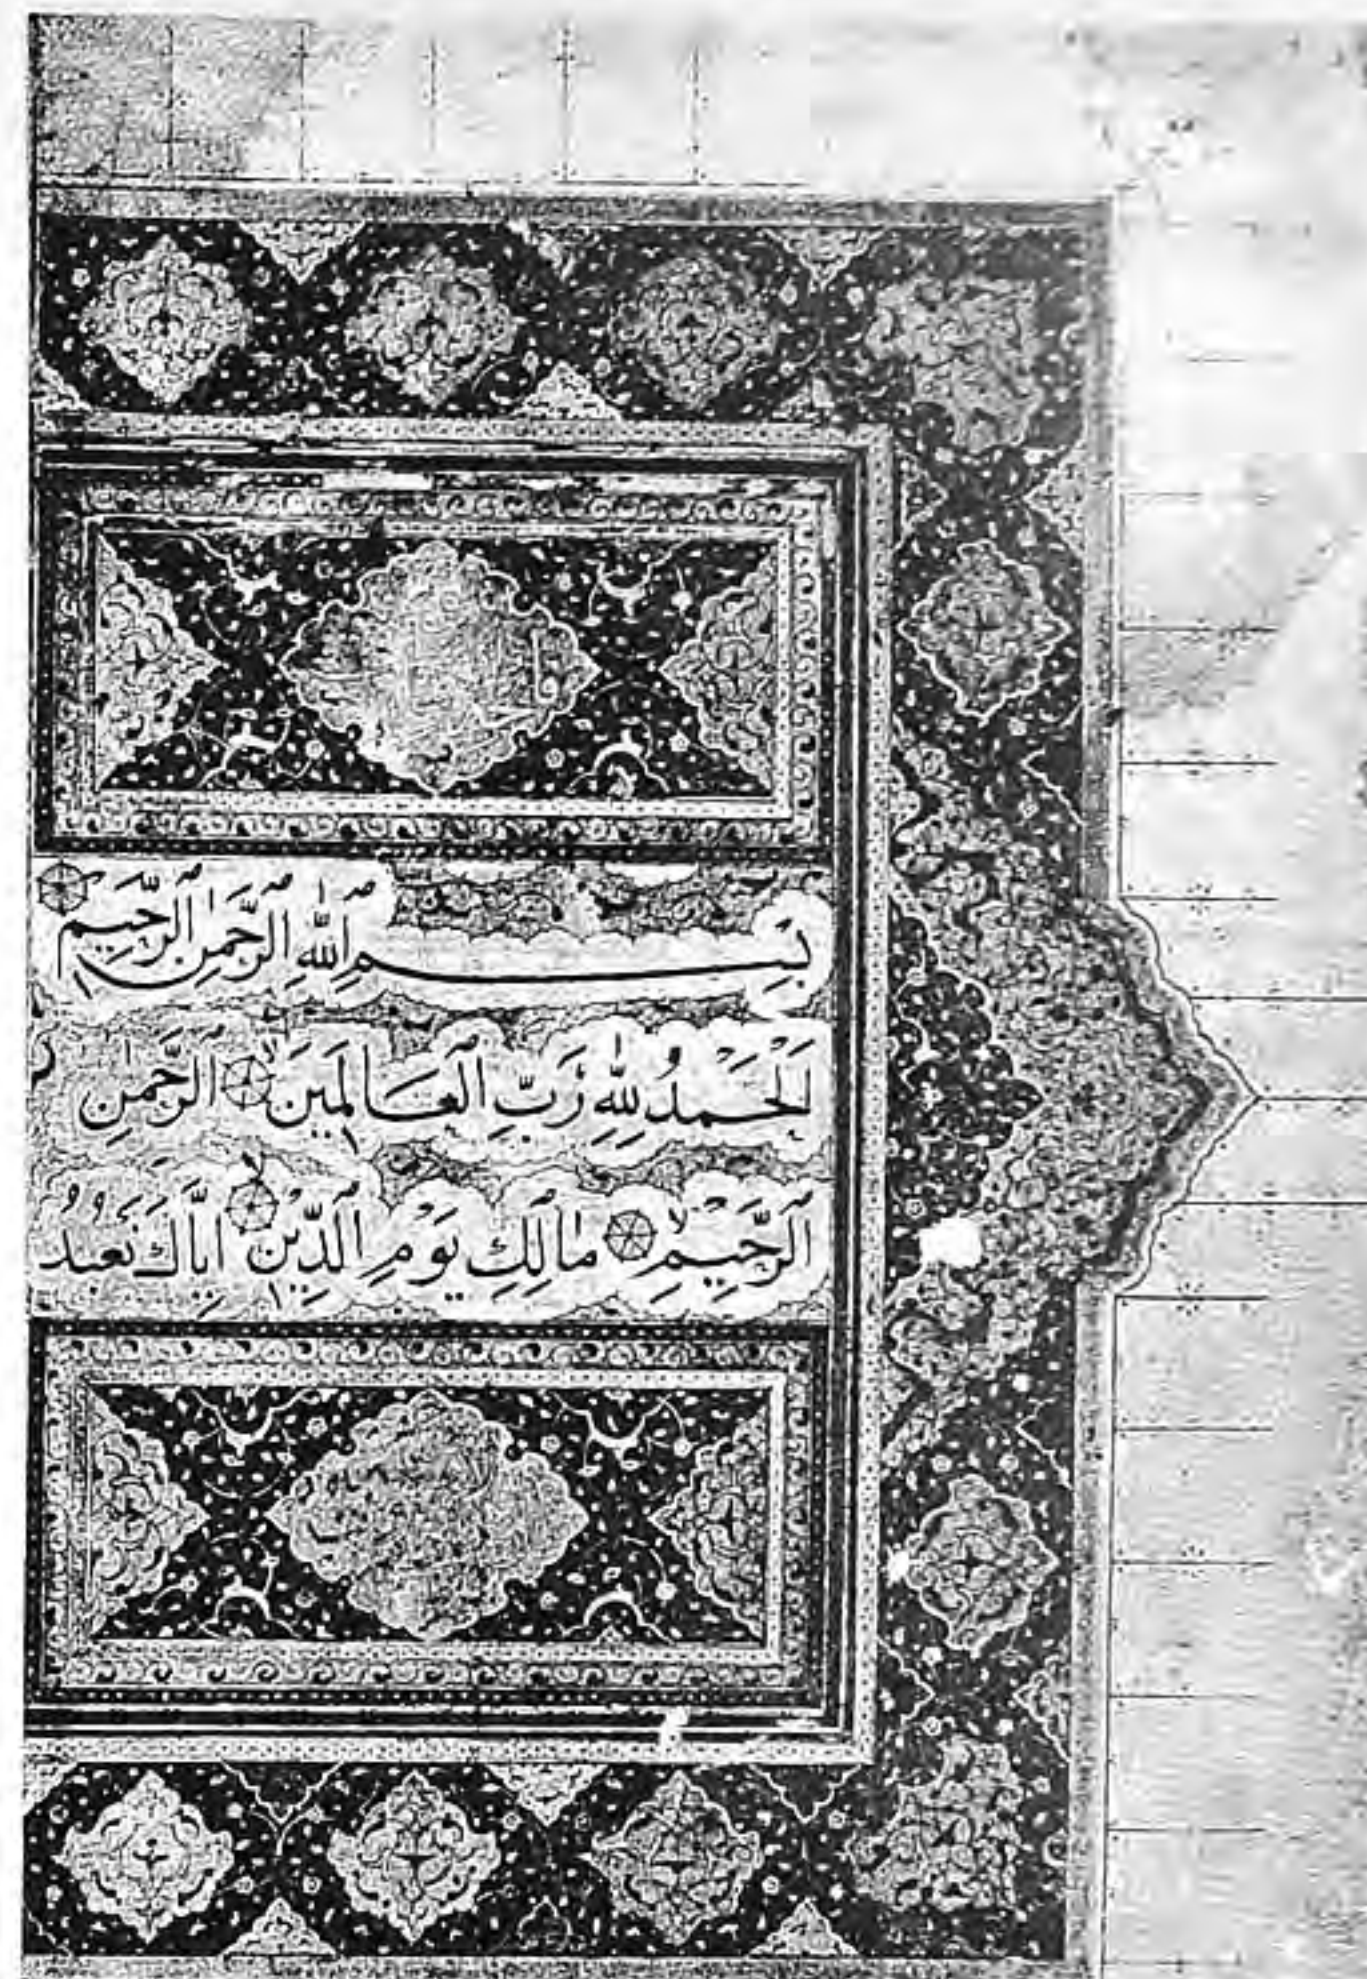 بِسْمِ اللَّهِ الرَّحْمَٰنِ الرَّحِيمِ
الْحَمْدُ لِلَّهِ رَبِّ الْعَالَمِينَ الرَّحْمَٰنِ
الرَّحِيمِ مَالِكِ يَوْمِ الدِّينِ إِيَّاكَ نَعْبُدُ